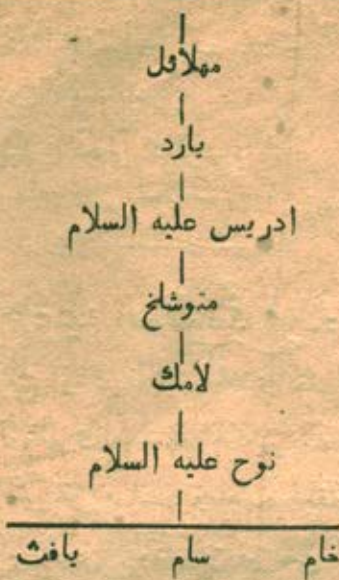 مهلاقل
يارد
ادريس عليه السلام
متوشلخ
لامك
نوح عليه السلام
خام سام يافث